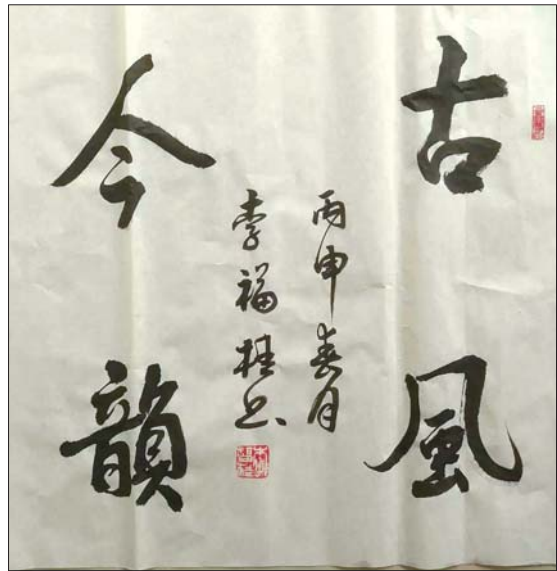 古風
今韻
丙申春月
李福桂书